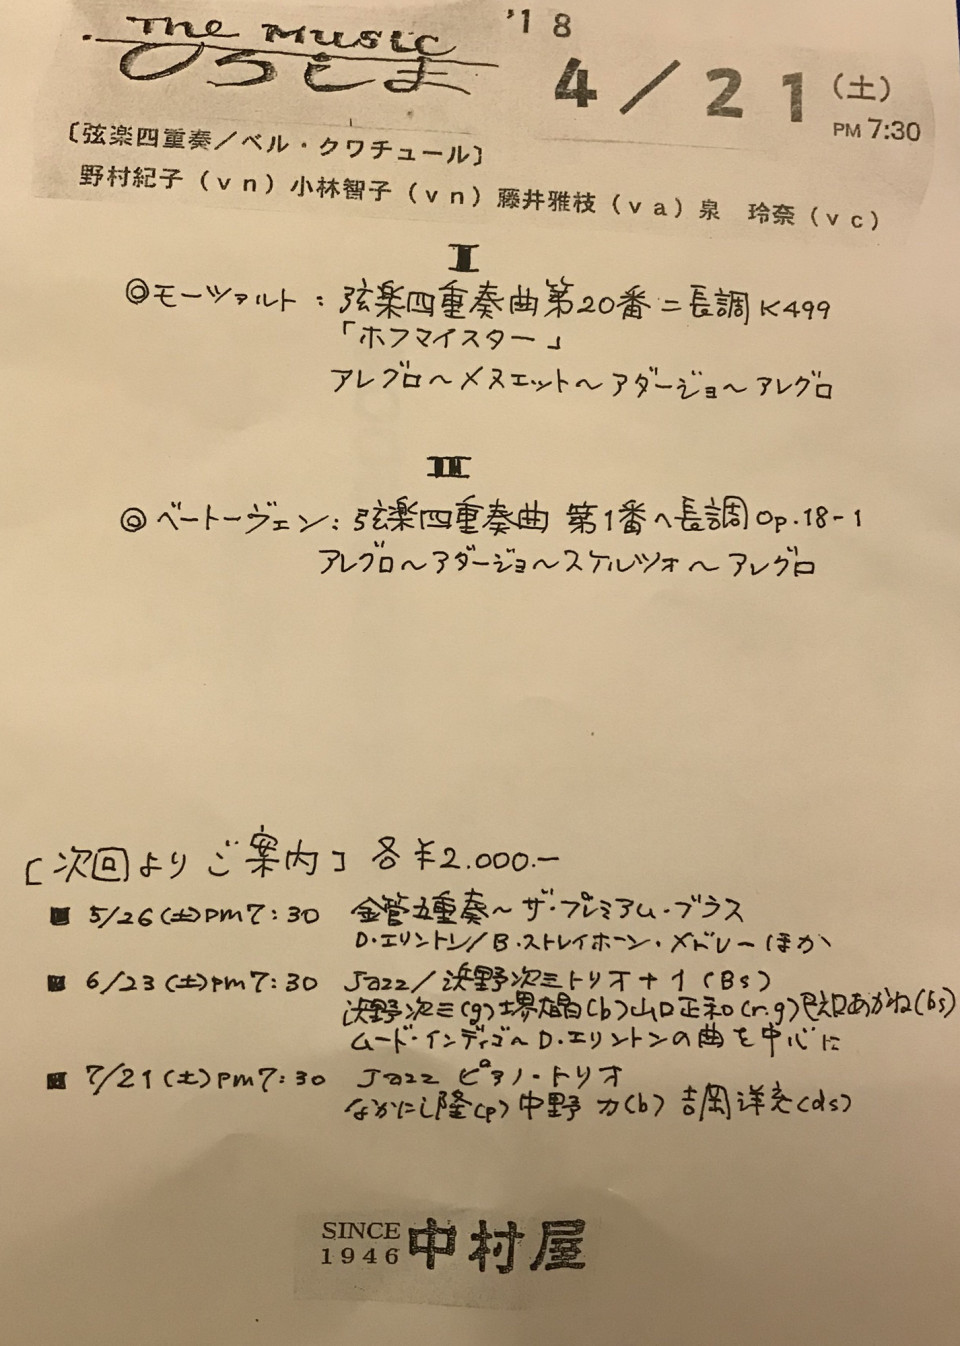 The Music
ひろしま
'18
4/21(土)
PM 7:30
〔弦楽四重奏/ベル・クワチュール〕
野村紀子(vn)小林智子(vn)藤井雅枝(va)泉 玲奈(vc)
I
◎モーツァルト:弦楽四重奏曲第20番ニ長調K499
「ホフマイスター」
アレグロ〜メヌエット〜アダージョ〜アレグロ
II
◎ベートーヴェン:弦楽四重奏曲 第1番ヘ長調Op.18-1
アレグロ〜アダージョ〜スケルツォ〜アレグロ
[次回より ご案内] 各¥2.000.-
■ 5/26(土)pm7:30 金管五重奏〜ザ・プレミアム・ブラス
D・エリントン/B・ストレイホーン・メドレーほか
■ 6/23(土)pm7:30 Jazz/浜野次三トリオ+1(Bs)
浜野次三(g)堺晶(b)山口正和(r.g)あかね(bs)
ムード・インディゴ〜D・エリントンの曲を中心に
■ 7/21(土)pm7:30 Jazz ピアノ・トリオ
なかにし隆(p)中野 力(b) 吉岡洋充(ds)
SINCE
1946
中村屋